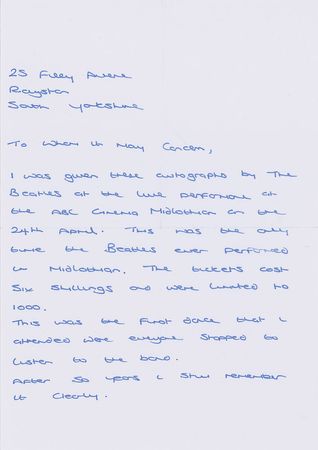 25 Filey Avenue
Royston
South Yorkshire
To Whom it May Concern,
I was given these autographs by The
Beatles at the live performance at
the ABC Cinema Midlothian on the
24th April. This was the only
time the Beatles ever performed
in Midlothian. The tickets cost
six shillings and were limited to
1000.
This was the first dance that i
attended were everyone stopped to
listen to the band.
After 50 years i still remember
it clearly.